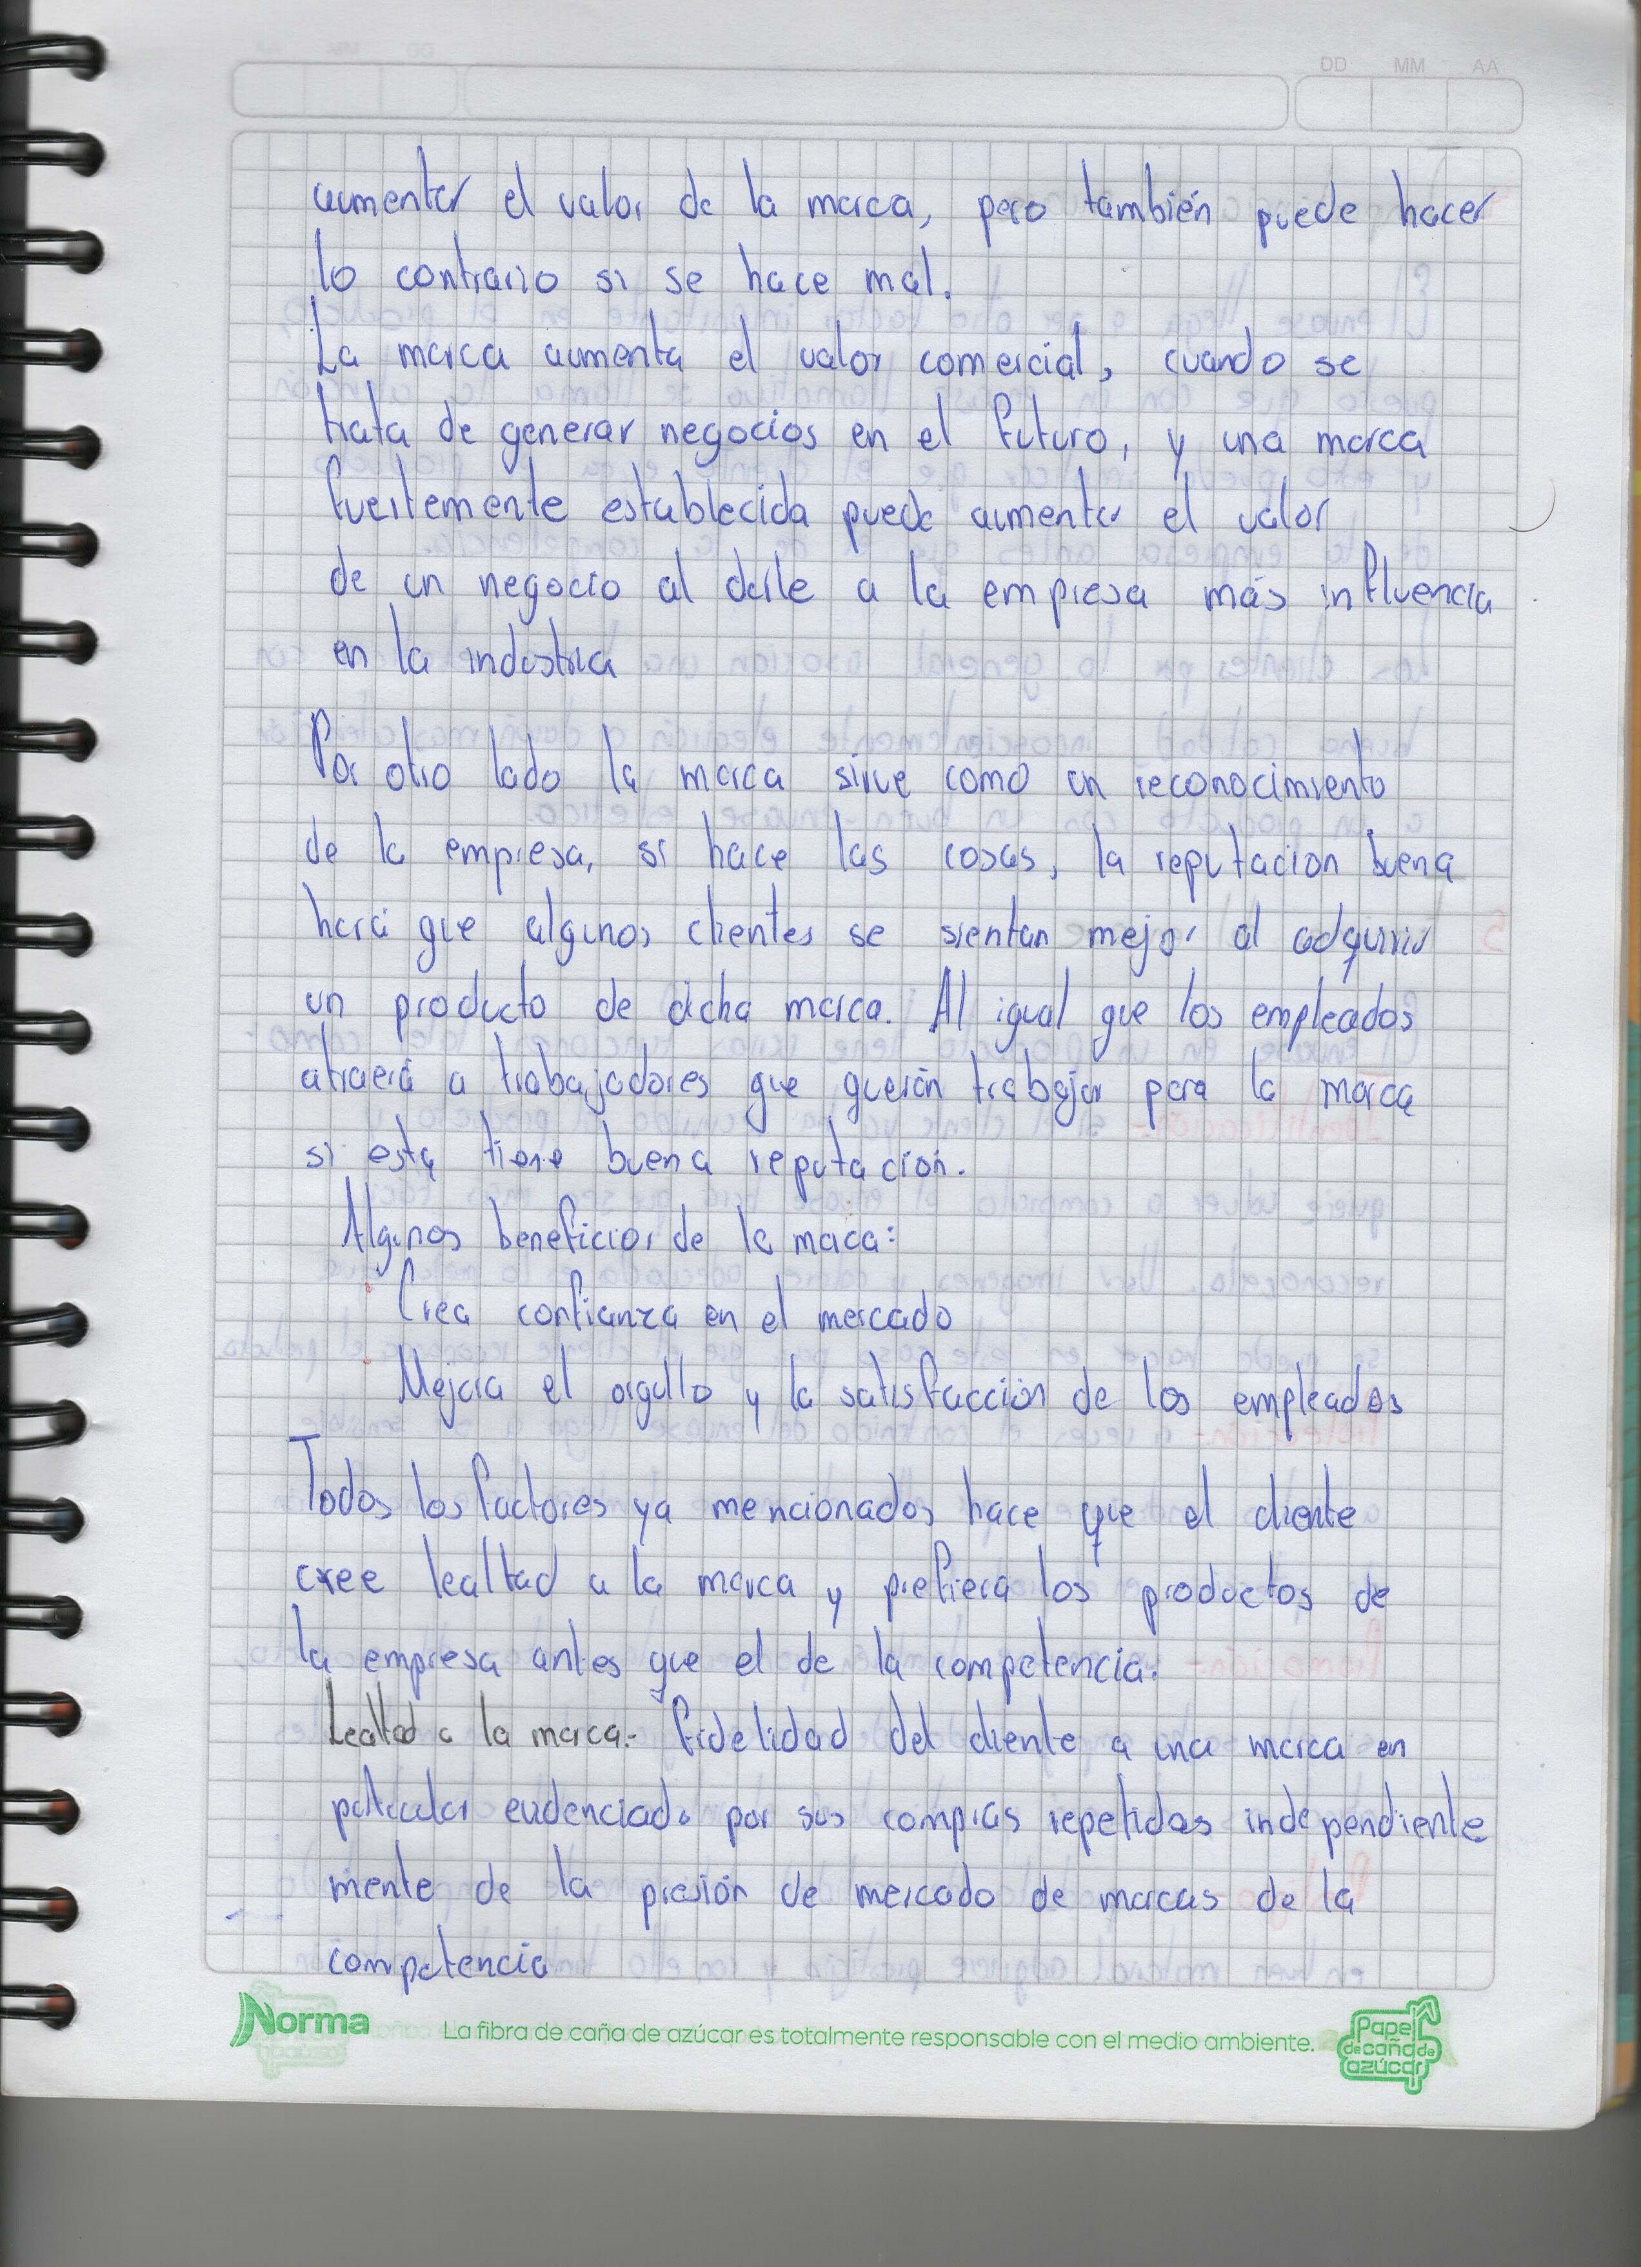 DD MM AA
aumentar el valor de la marca, pero también puede hacer
lo contrario si se hace mal.
La marca aumenta el valor comercial, cuando se
trata de generar negocios en el futuro, y una marca
fuertemente establecida puede aumentar el valor
de un negocio al darle a la empresa más influencia
en la industria
Por otro lado la marca sirve como un reconocimiento
de la empresa, si hace las cosas, la reputacion buena
hará que algunos clientes se sientan mejor al adquirir
un producto de dicha marca. Al igual que los empleados
atraerá a trabajadores que querán trabajar para la marca
si esta tiene buena reputación.
Algunos beneficios de la maca:
Crea confianza en el mercado
Mejora el orgullo y la satisfacción de los empleados
Todos los factores ya mencionados hace que el cliente
cree lealtad a la marca y prefiera los productos de
la empresa antes que el de la competencia.
Lealtad a la marca.- Fidelidad del cliente a una marca en
paticular evidenciado por sus compras repetidas independiente
mente de la presión de mercado de marcas de la
competencia
Norma La fibra de caña de azúcar es totalmente responsable con el medio ambiente.
Papel
de caña de
azúcar